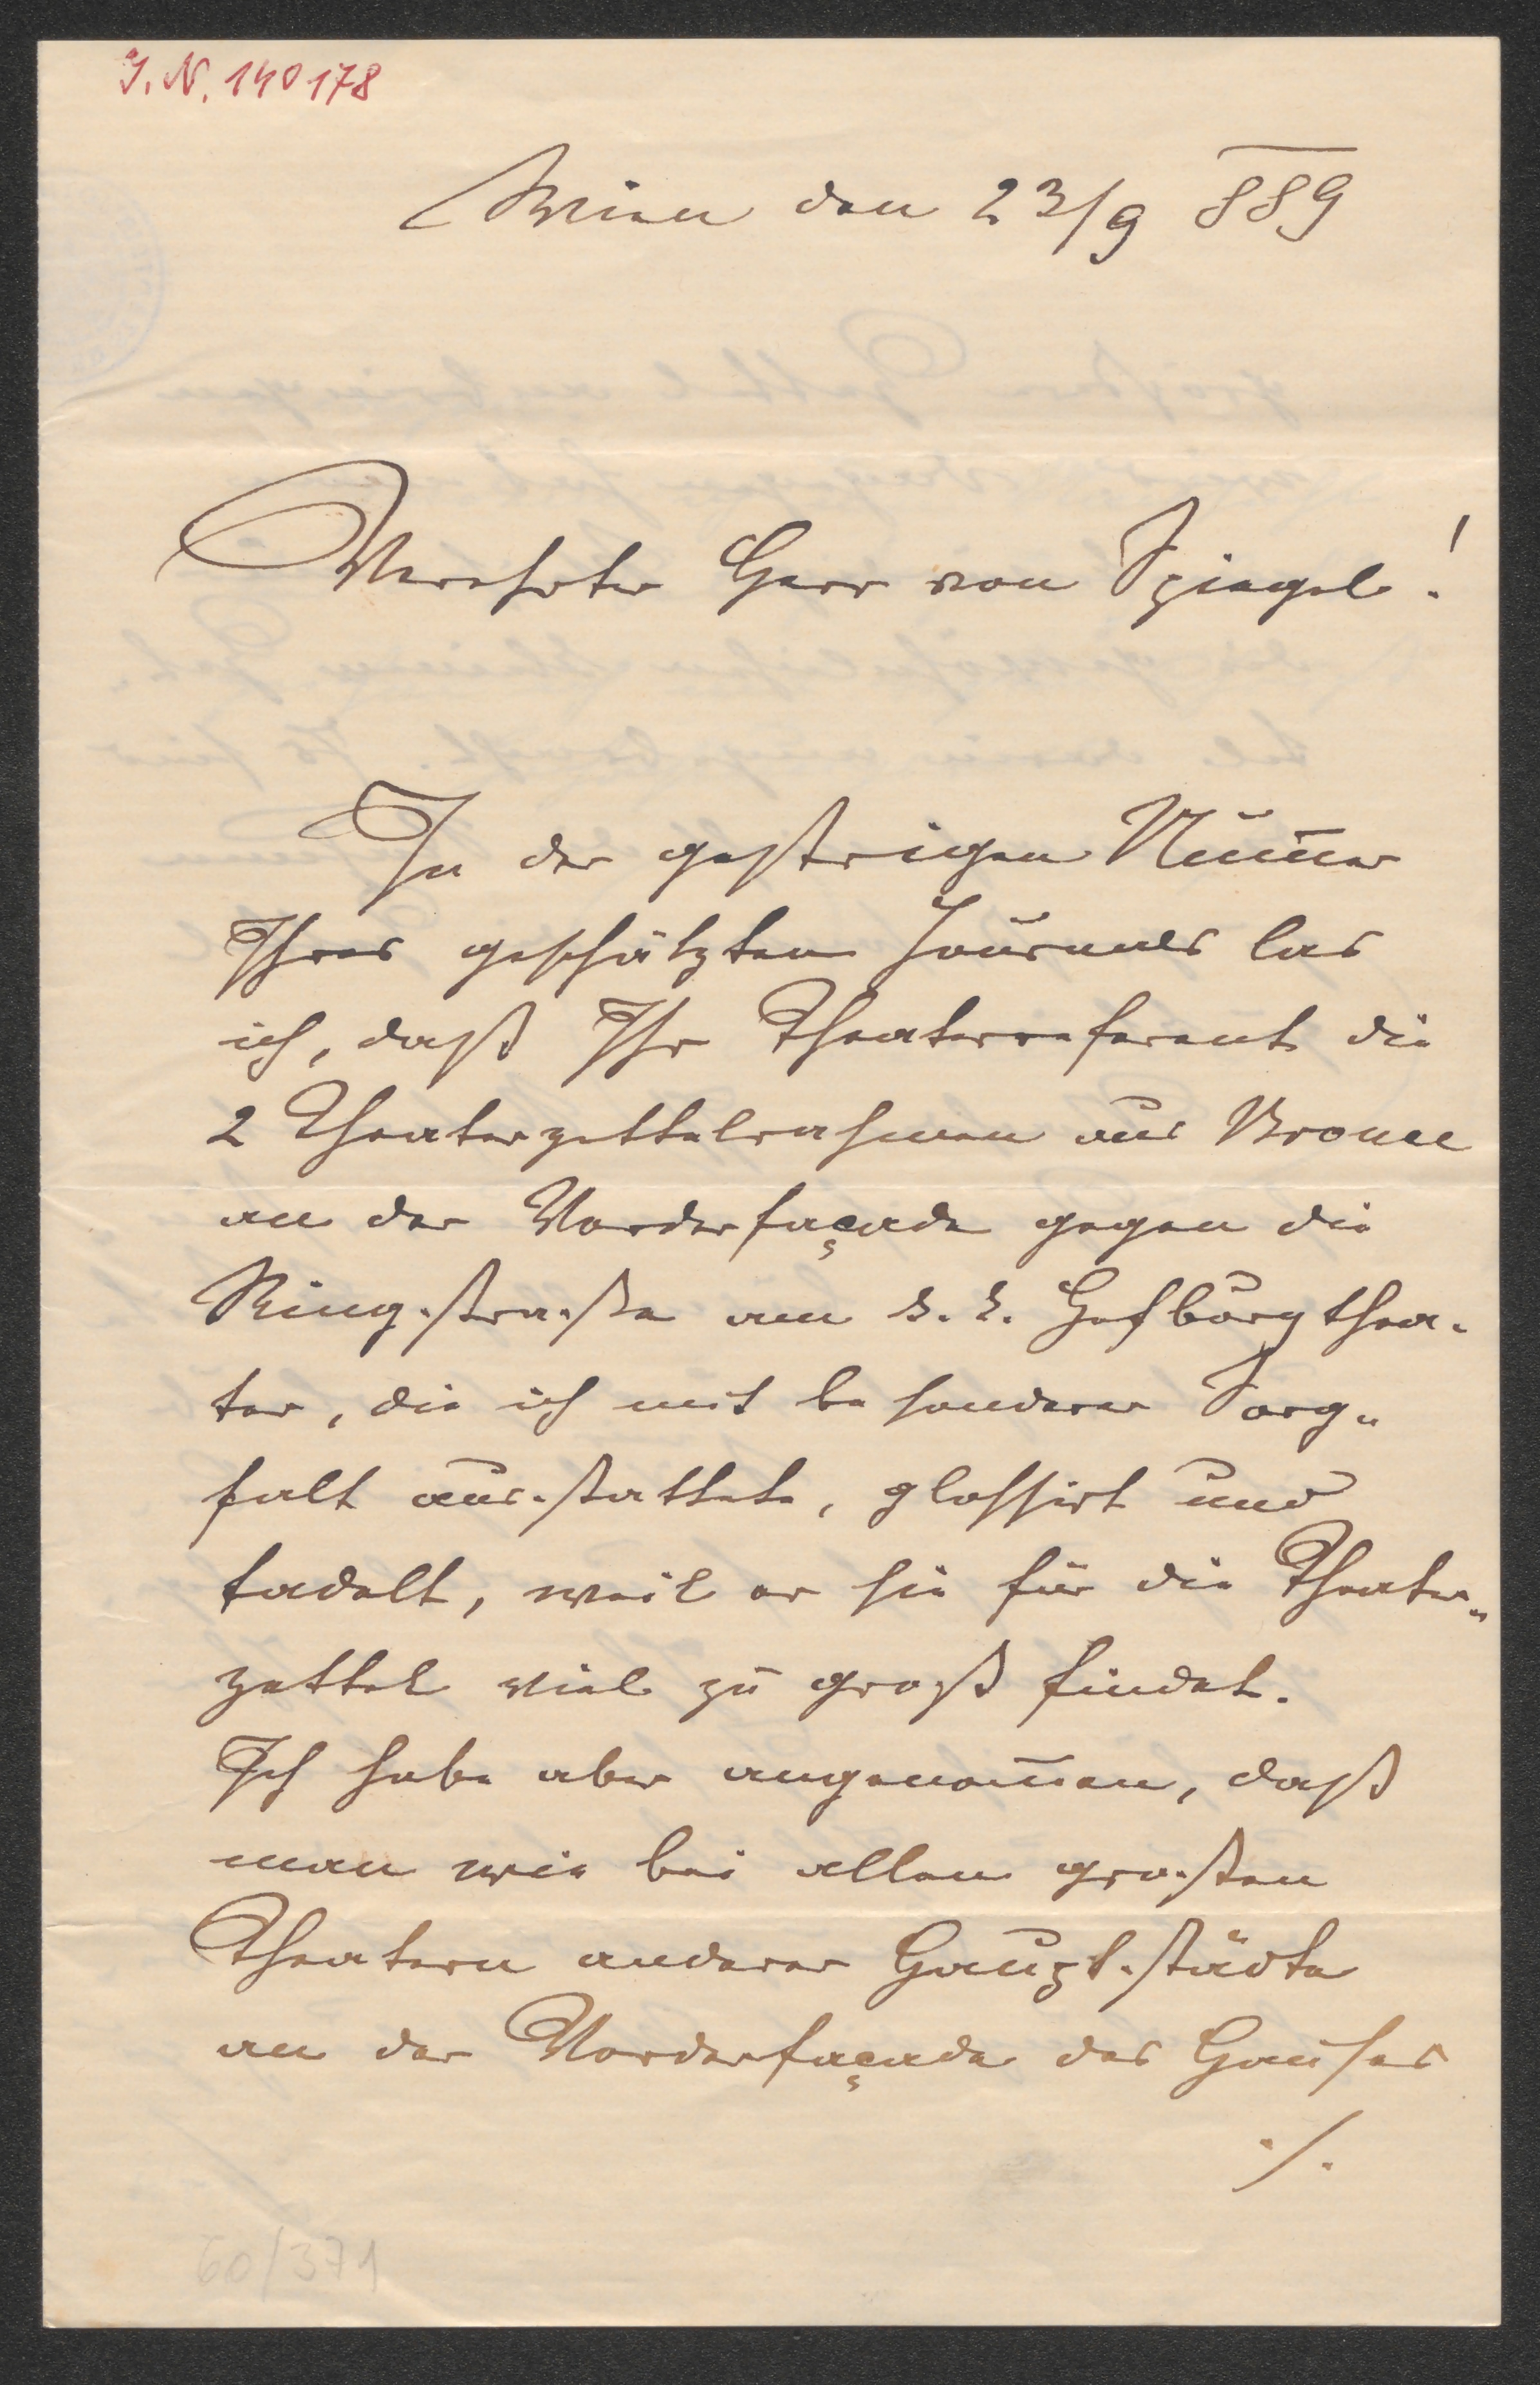 I. N. 140178
Wien den 23/9 889
Verehrter Herr von Spiegel!
In der gestrigen Num̅er
Ihres geschätzten Journals las
ich, daß Ihr Theaterreferent die
2 Theaterzettelrahmen aus Bronce
an der Vorderfaçade gegen die
Ringstraße am k. k. Hofburgthea-
ter, die ich mit besonderer Sorg-
falt ausstattete, glossirt und
tadelt, weil er sie für die Theater-
zettel viel zu groß findet.
Ich habe aber angenom̅en, daß
man wie bei allen großen
Theatern anderer Hauptstädte
an der Vorderfaçade des Hauses
./.
60/371